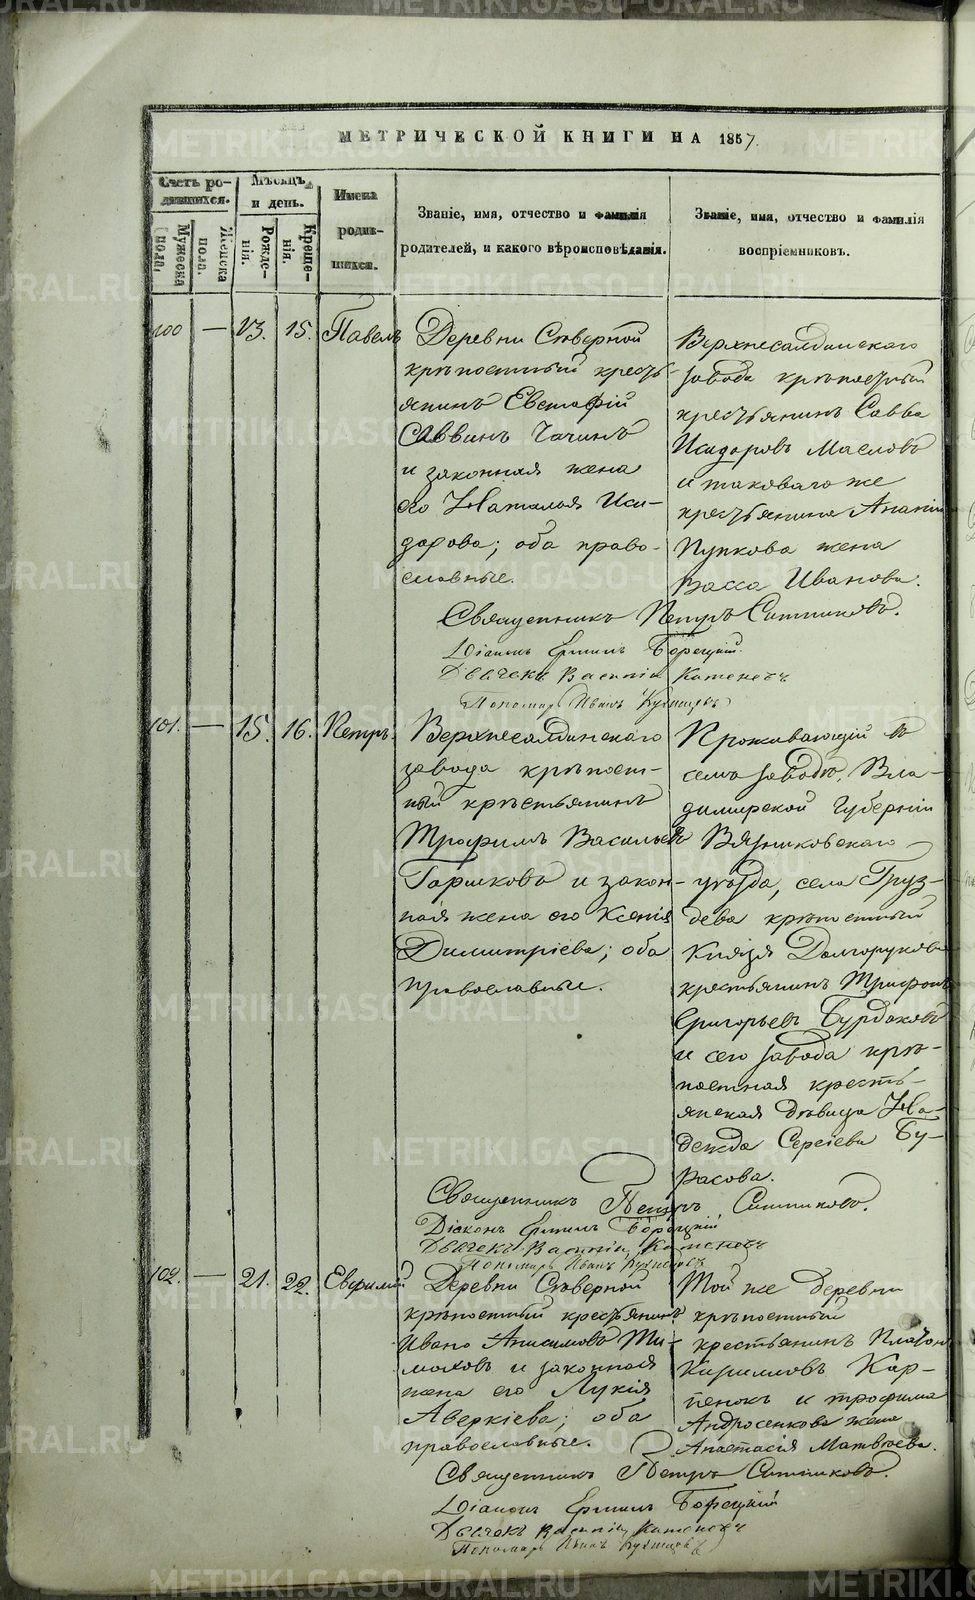 МЕТРИЧЕСКОЙ КНИГИ НА 1857.
Счетъ родившихся.
Мужеска пола.
Женска пола.
Мѣсяцъ и день.
Рожденія.
Крещенія.
Имена родившихся.
Званіе, имя, отчество и фамилія
родителей, и какого вѣроисповѣданія.
Званіе, имя, отчество и фамилія
воспріемниковъ.
100 — 13. 15. Павелъ
Деревни Сѣверной
крѣпостный кресть-
янинъ Евстафій
Саввинъ Чагинъ
и законная жена
его Наталья Иси-
дорова; оба право-
славные.
Верхнесалдинскаго
завода крѣпостный
крестьянинъ Савва
Исидоровъ Масловъ
и таковаго же
крестьянина Ананіи
Пупкова жена
Васса Иванова.
Священникъ Петръ Ситниковъ.
Діаконъ Ермилъ Борецкій
Дьячекъ Василій
Пономарь Иванъ
101. — 15. 16. Петръ.
Верхнесалдинскаго
завода крѣпост-
ный крестьянинъ
Трофимъ Васильевъ
Горшковъ и закон-
ная жена его Ксенія
Димитріева; оба
православные.
Проживающій въ
семъ заводѣ, Вла-
димирской Губерніи
Вязниковскаго
уѣзда, села Груз-
дева крѣпостный
Князя Долгорукова
крестьянинъ Трифонъ
Григорьевъ Бурдаковъ
и сего завода крѣ-
постная кресть-
янская дѣвица На-
дежда Сергіева Бу-
расова.
Священникъ Петръ Ситниковъ.
Діаконъ Ермилъ Борецкій
Дьячекъ Василій
Пономарь Иванъ
102. — 21. 22. Евфимій
Деревни Сѣверной
крѣпостный крестьянинъ
Иванъ Анисимовъ Ти-
моховъ и законная
жена его Лукія
Аверкіева; оба
православные.
Той же деревни
крѣпостный
крестьянинъ Платонъ
Кирилловъ Кар-
пенокъ и Трофима
Андросенкова жена
Анастасія Матвѣева.
Священникъ Петръ Ситниковъ.
Діаконъ Ермилъ Борецкій
Дьячекъ Василій
Пономарь Иванъ
METRIKI.GASO-URAL.RU